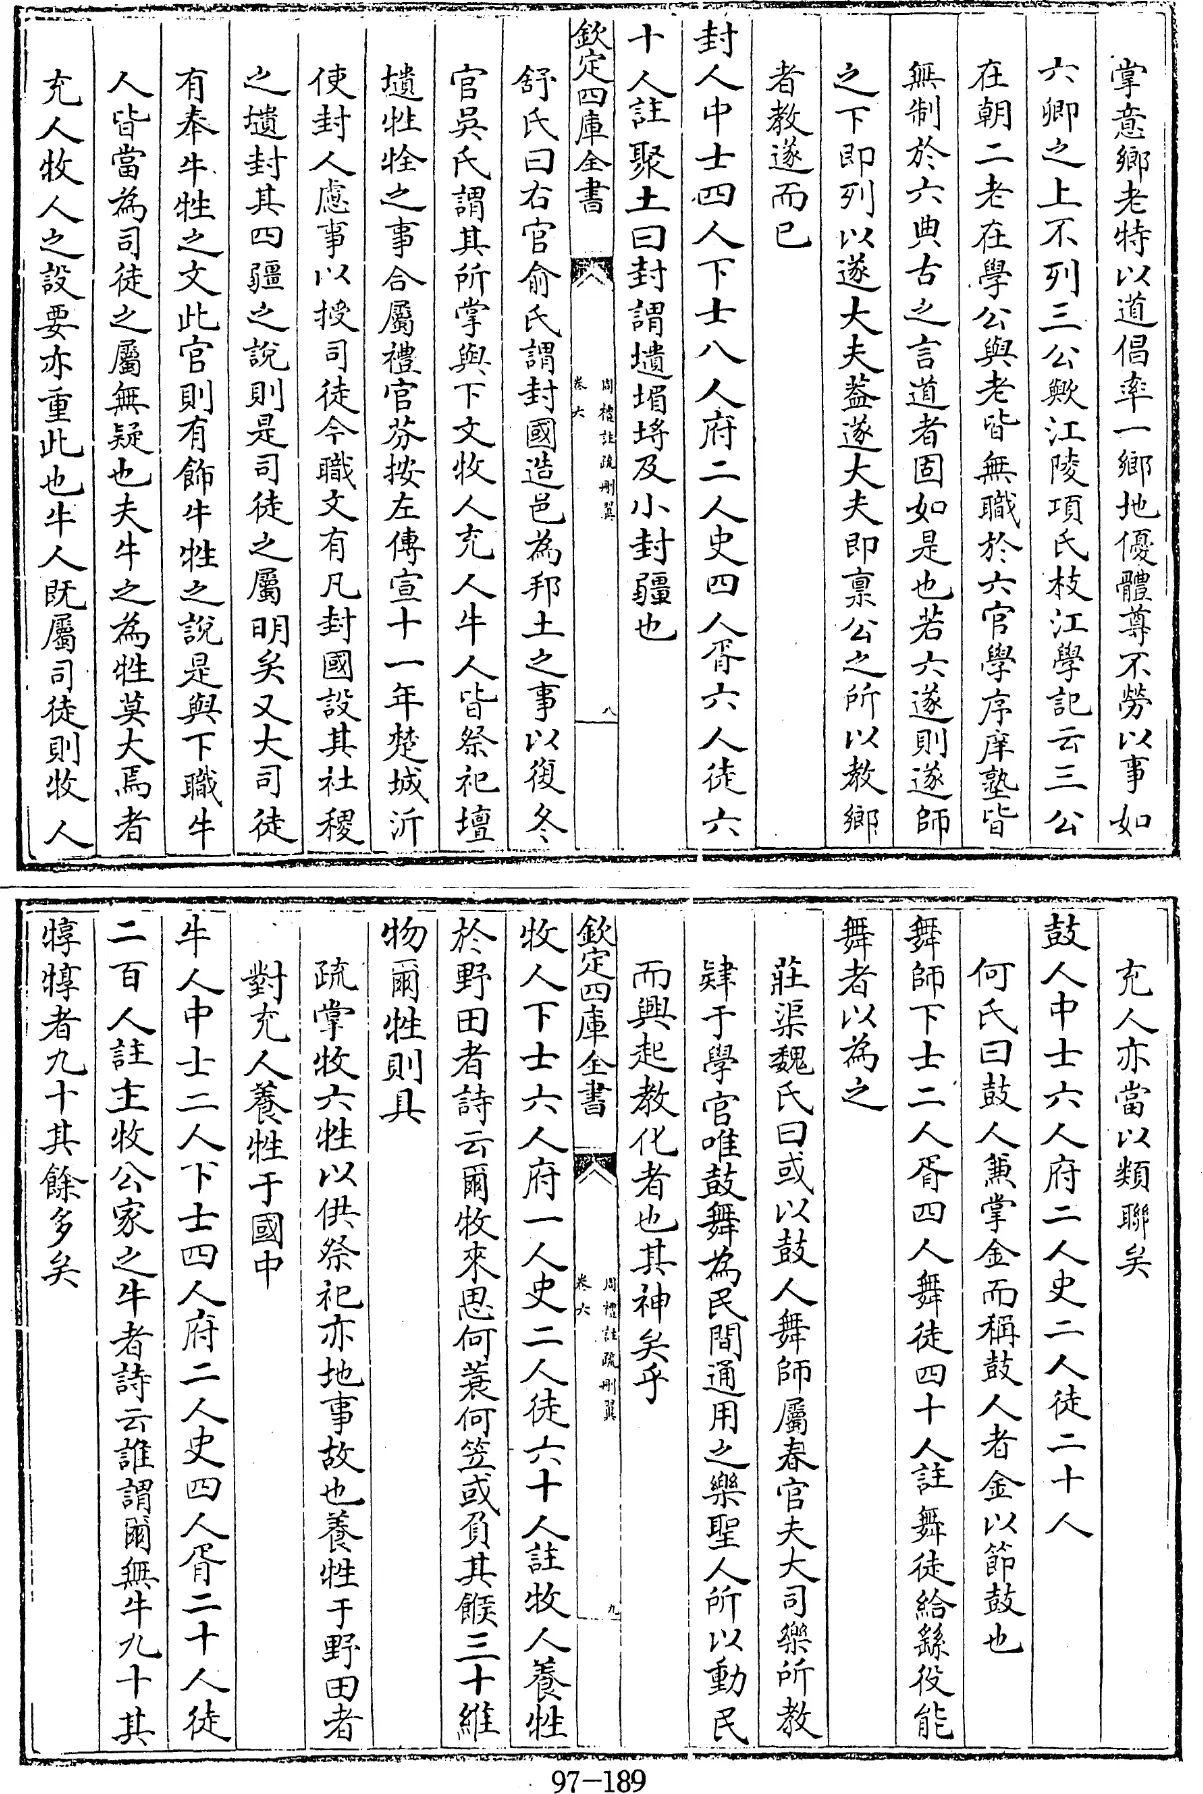 掌意鄉老特以道倡率一鄉地優體尊不勞以事如
六卿之上不列三公歟江陵項氏枝江學記云三公
在朝二老在學公與老皆無職於六官學序庠塾皆
無制於六典古之言道者固如是也若六遂則遂師
之下即列以遂大夫葢遂大夫即禀公之所以教鄉
者教遂而已
封人中士四人下士八人府二人史四人胥六人徒六
十人註聚土曰封謂壝堳埒及小封疆也
欽定四庫全書
周禮註疏刪翼
卷六
八
舒氏曰右官俞氏謂封國造邑為邦土之事以復冬
官吳氏謂其所掌與下文牧人充人牛人皆祭祀壇
壝牲牷之事合屬禮官芬按左傳宣十一年楚城沂
使封人慮事以授司徒今職文有凡封國設其社稷
之壝封其四疆之說則是司徒之屬明矣又大司徒
有奉牛牲之文此官則有飾牛牲之說是與下職牛
人皆當為司徒之屬無疑也夫牛之為牲莫大焉者
充人牧人之設要亦重此也牛人既屬司徒則牧人
充人亦當以類聯矣
鼓人中士六人府二人史二人徒二十人
何氏曰鼓人兼掌金而稱鼓人者金以節鼓也
舞師下士二人胥四人舞徒四十人註舞徒給繇役能
舞者以為之
莊渠魏氏曰或以鼓人舞師屬春官夫大司樂所教
肄于學官唯鼓舞為民間通用之樂聖人所以動民
而興起教化者也其神矣乎
欽定四庫全書
周禮註疏刪翼
卷六
九
牧人下士六人府一人史二人徒六十人註牧人養牲
於野田者詩云爾牧來思何蓑何笠或負其餱三十維
物爾牲則具
疏掌牧六牲以供祭祀亦地事故也養牲于野田者
對充人養牲于國中
牛人中士二人下士四人府二人史四人胥二十人徒
二百人註主牧公家之牛者詩云誰謂爾無牛九十其
犉犉者九十其餘多矣
97-189